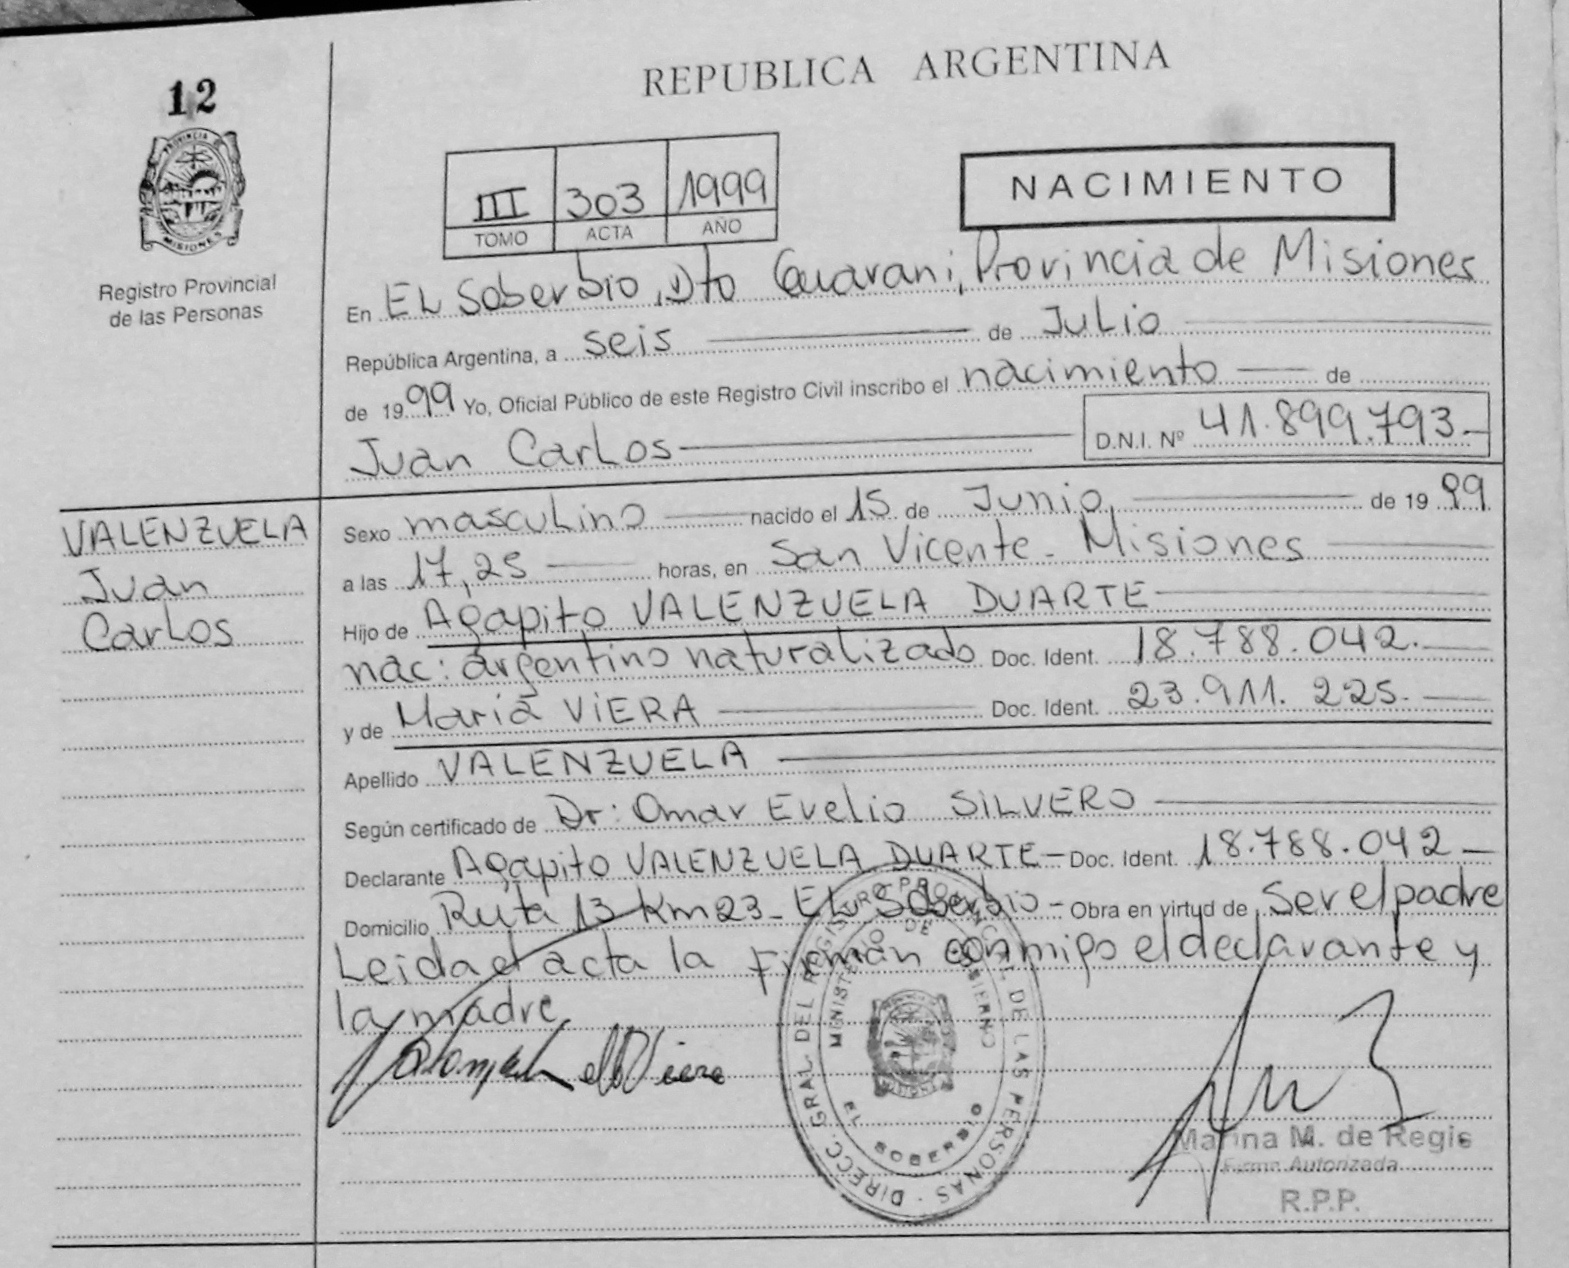 12
PROVINCIA D
MISIONES
Registro Provincial
de las Personas
REPUBLICA ARGENTINA
III 303 1999
TOMO ACTA AÑO
NACIMIENTO
En EL Soberbio, Dto Guarani, Provincia de Misiones
República Argentina, a seis de Julio
de 1999 Yo, Oficial Público de este Registro Civil inscribo el nacimiento de
Juan Carlos D.N.I. Nº 41.899.793.-
VALENZUELA
Juan
Carlos
Sexo masculino nacido el 15 de Junio de 1999
a las 17,25 horas, en San Vicente - Misiones
Hijo de Agapito VALENZUELA DUARTE
nac: argentino naturalizado Doc. Ident. 18.788.042.
y de Maria VIERA Doc. Ident. 23.911.225.
Apellido VALENZUELA
Según certificado de Dr: Omar Evelio SILVERO
Declarante Agapito VALENZUELA DUARTE - Doc. Ident. 18.788.042 -
Domicilio Ruta 13 Km 23 - EL Soberbio - Obra en virtud de ser el padre
Leida el acta la firman conmigo el declarante y
la madre
DIRECC. GRAL. DEL REGISTRO PROVINCIAL DE LAS PERSONAS
MINISTERIO DE GOBIERNO
EL SOBERBIO
Marina M. de Regis
Firma Autorizada
R.P.P.